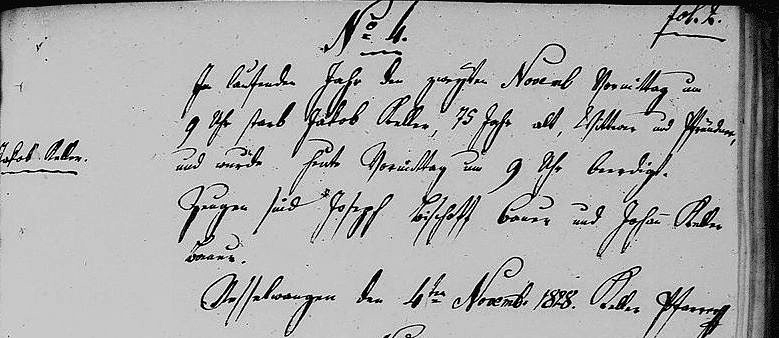 fol. 2.
No 4.
Im laufenden Jahr den zweyten Novemb Vormittag um
9 Uhr starb Jakob Keller, 75 Jahr alt, Wittwer und Pfründner,
Jakob Keller.
und wurde heute Vormittag um 9 Uhr beerdigt.
Zeugen sind Joseph Bischoff Bauer und Johan Keller
Bauer.
Nesselwangen den 4ten Novemb. 1828. Keller Pfarrer